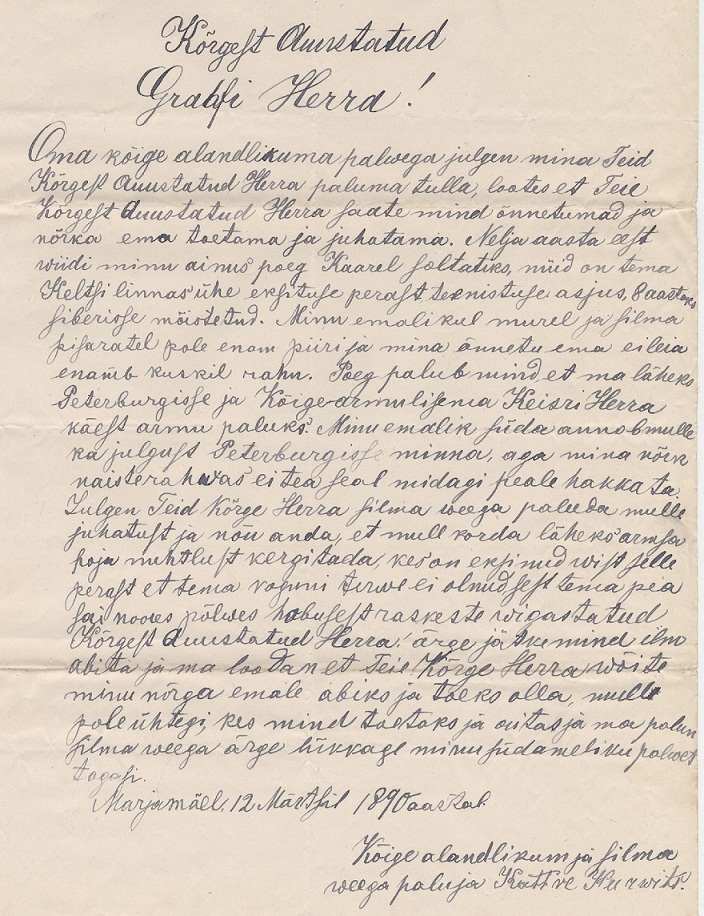 Kõrgest Auustatud
Grahfi Herra!
Oma kõige alandlikuma palwega julgen mina Teid
Kõrgest Auustatud Herra paluma tulla, lootes et Teie
Kõrgest Auustatud Herra saate mind õnnetumad ja
nõrka ema toetama ja juhatama. Nelja aasta eest
wiidi minu ainus poeg Kaarel soltatiks, nüid on tema
Keltsi linnas ühe eksituse perast teenistuse asjus, 8 aastaks
siberisse mõistetud. Minu emalikul murel ja silma
pisaratel pole enam piiri ja mina õnnetu ema ei leia
enamb kuskil rahu. Poeg palub mind, et ma läheks
Peterburgisse ja Kõige-armulisema Keisri Herra
käest armu paluks. Minu emalik süda annab mulle
ka julgust Peterburgisse minna, aga mina nõrk
naisterahwas ei tea seal midagi peale hakkata.
Julgen Teid Kõrge Herra silma weega paluda mulle
juhatust ja nõu anda, et mull korda läheks armsa
poja nuhtlust kergitada, kes on eksinud wist selle
perast et tema roguni terwe ei olnud sest tema pea
sai noores põlwes hobusest raskeste wigastatud
Kõrgest Auustatud Herra! ärge jätke mind ilm
abita ja ma loodan et Teie Kõrge Herra wõite
minu nõrga emale abiks ja toeks olla, mulle
pole ühtegi, kes mind toetaks ja aitas ja ma palun
silma weega ärge lükkage minu südameliku palwet
tagasi.
Marjamäel, 12 Märtsil 1890 aastal
Kõige alandlikum ja silma
weega paluja Kattre Kurwits.